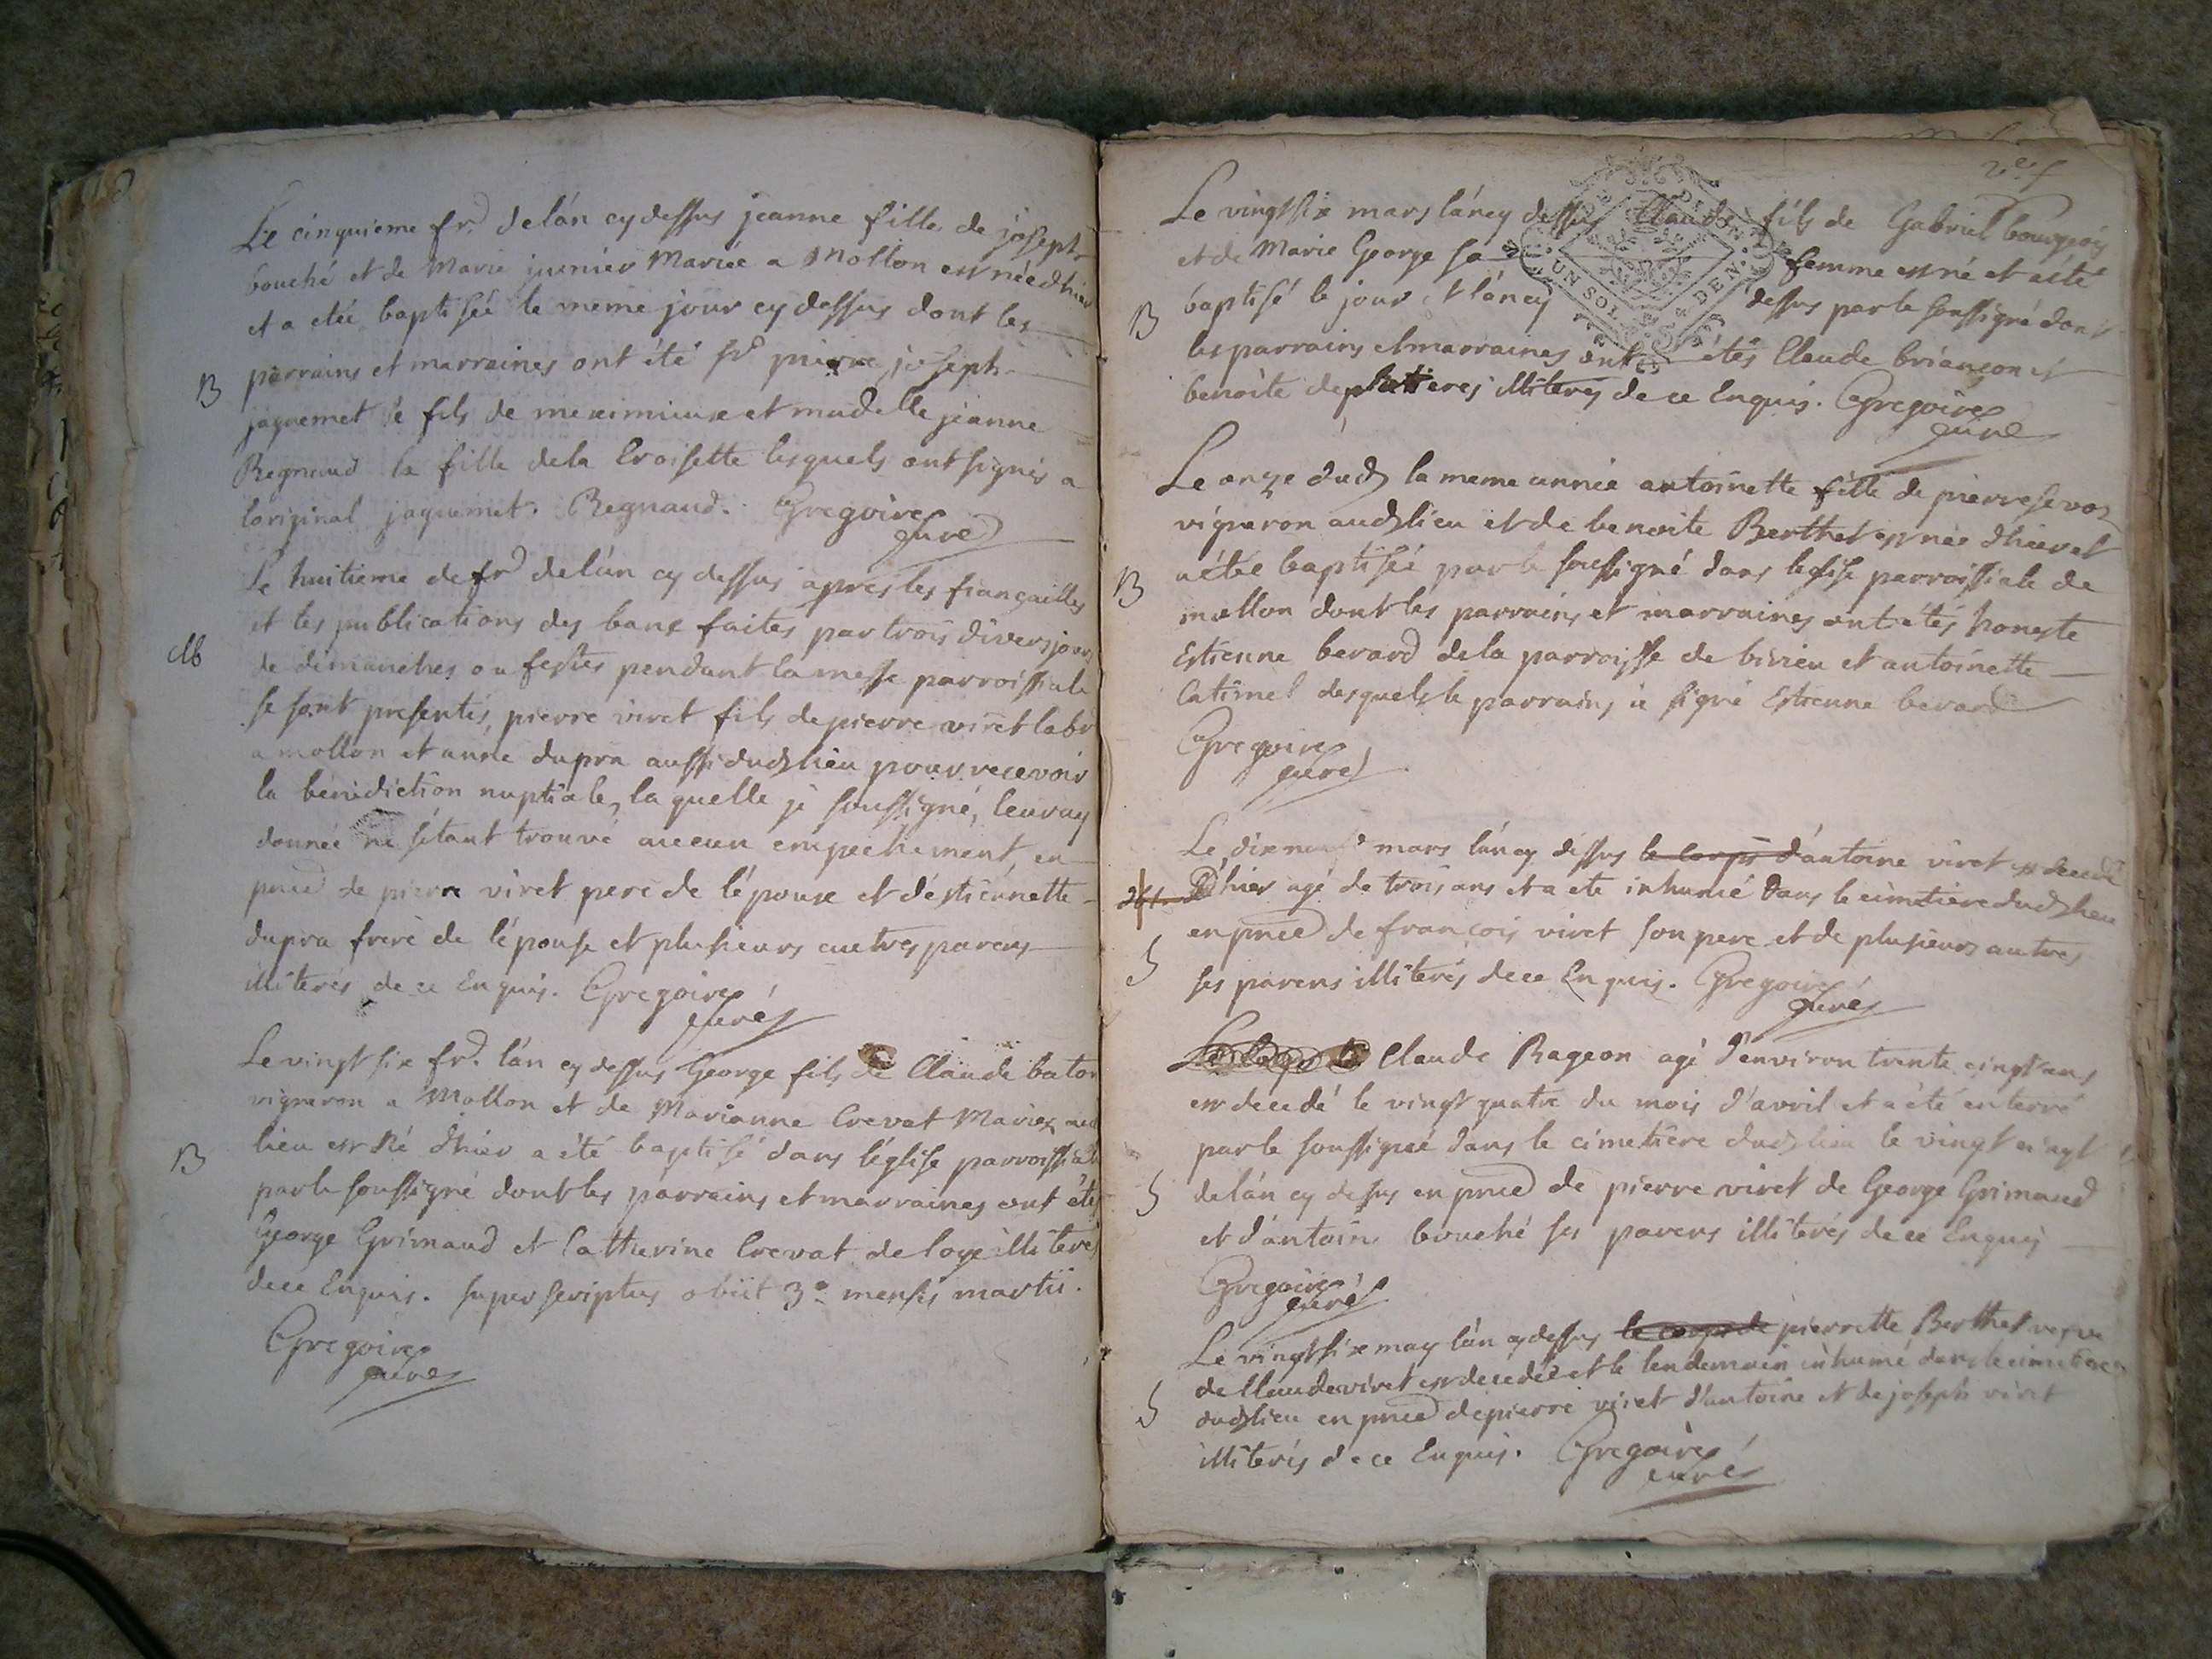 Le cinquieme fr.d delán cy dessus jeanne fille de joseph
bouché et de Marie juenier Mariée a Mollon est née d'hier
et a été baptisée le meme jour cy dessus dont les
B parrains et marraines ont été Sr pierre joseph
jaquemet le fils de meximieux et madelle jeanne
Regnaud la fille dela Croisette lesquels ont signés a
loriginal jaquemet. Regnaud. Gregoire
curé
Le huitieme de fr.d delán cy dessus apres les françailles
et les publications des banx faites par trois divers jours
Mb de dimanches ou festes pendant la messe parroissiale
se sont presentés, pierre viret fils de pierre viret labr
a mollon et anne dupra aussi dud lieu pour recevoir
la benediction nuptiale, la quelle je soussigné, leur ay
donneé ne sétant trouvé aucun empechement, en
pnce de pierre viret pere de lépoux et déstiennette
dupra frere de lépouse et plusieurs autres parens
illiterés de ce Enquis. Gregoire
curé
Le vingt six fr.d lán cy dessus George fils de Claude baton
vigneron a Mollon et de Marianne Crevat Mariez aud
B lieu est né d'hier a été baptisé dans léglise parroissiale
par le soussigné dont les parrains et marraines ont étés
George Grimaud et Catherine Crevat de loye illiterés
de ce Enquis. superscriptus obiit 3.a mensis martii.
Gregoire
curé
Le vingt six mars lán cy dessus Claude fils de Gabriel bourgeois
et de Marie George sa femme est né et a été
B baptisé le jour et lán cy dessus par le soussigné dont
UN SOL DEN.
les parrains et marraines ont étés Claude briançon et
benoite de illiterés de ce Enquis. Gregoire
curé
Le onze dud la meme année antoinette fille de pierre
vigneron aud lieu et de benoite Berthet est née d'hier et
B a étée baptisée par le soussigné dans leglise parroissiale de
mollon dont les parrains et marraines ont étés honeste
Estienne berard dela parroisse de birieu et antoinette
Catimel desquels le parrains a signé Estienne berard
Gregoire
curé
Le dix neuf mars lán cy dessus le corps d'antoine viret est decedé
D'hier agé de trois ans et a ete inhumé dans le cimetiere dud lieu
S en pnce de françois viret son pere et de plusieurs autres
ses parens illiterés de ce Enquis. Gregoire
curé
Claude Rageon agé d'environ trente cinqt ans
est decedé le vingt quatre du mois d'avril et a été enterré
par le soussigné dans le cimetiere dud lieu le vingt cinqt
S delán cy dessus en pnce de pierre viret de George Grimaud
et d'antoine bouché ses parens illiterés de ce Enquis
Gregoire
curé
Le vingt six may lán cy dessus le corps de pierrette Berthet vefve
de Claude viret est decedée et le lendemain inhumé dans le cimetiere
S dud lieu en pnce de pierre viret d'antoine et de joseph viret
illiterés de ce Enquis. Gregoire
curé